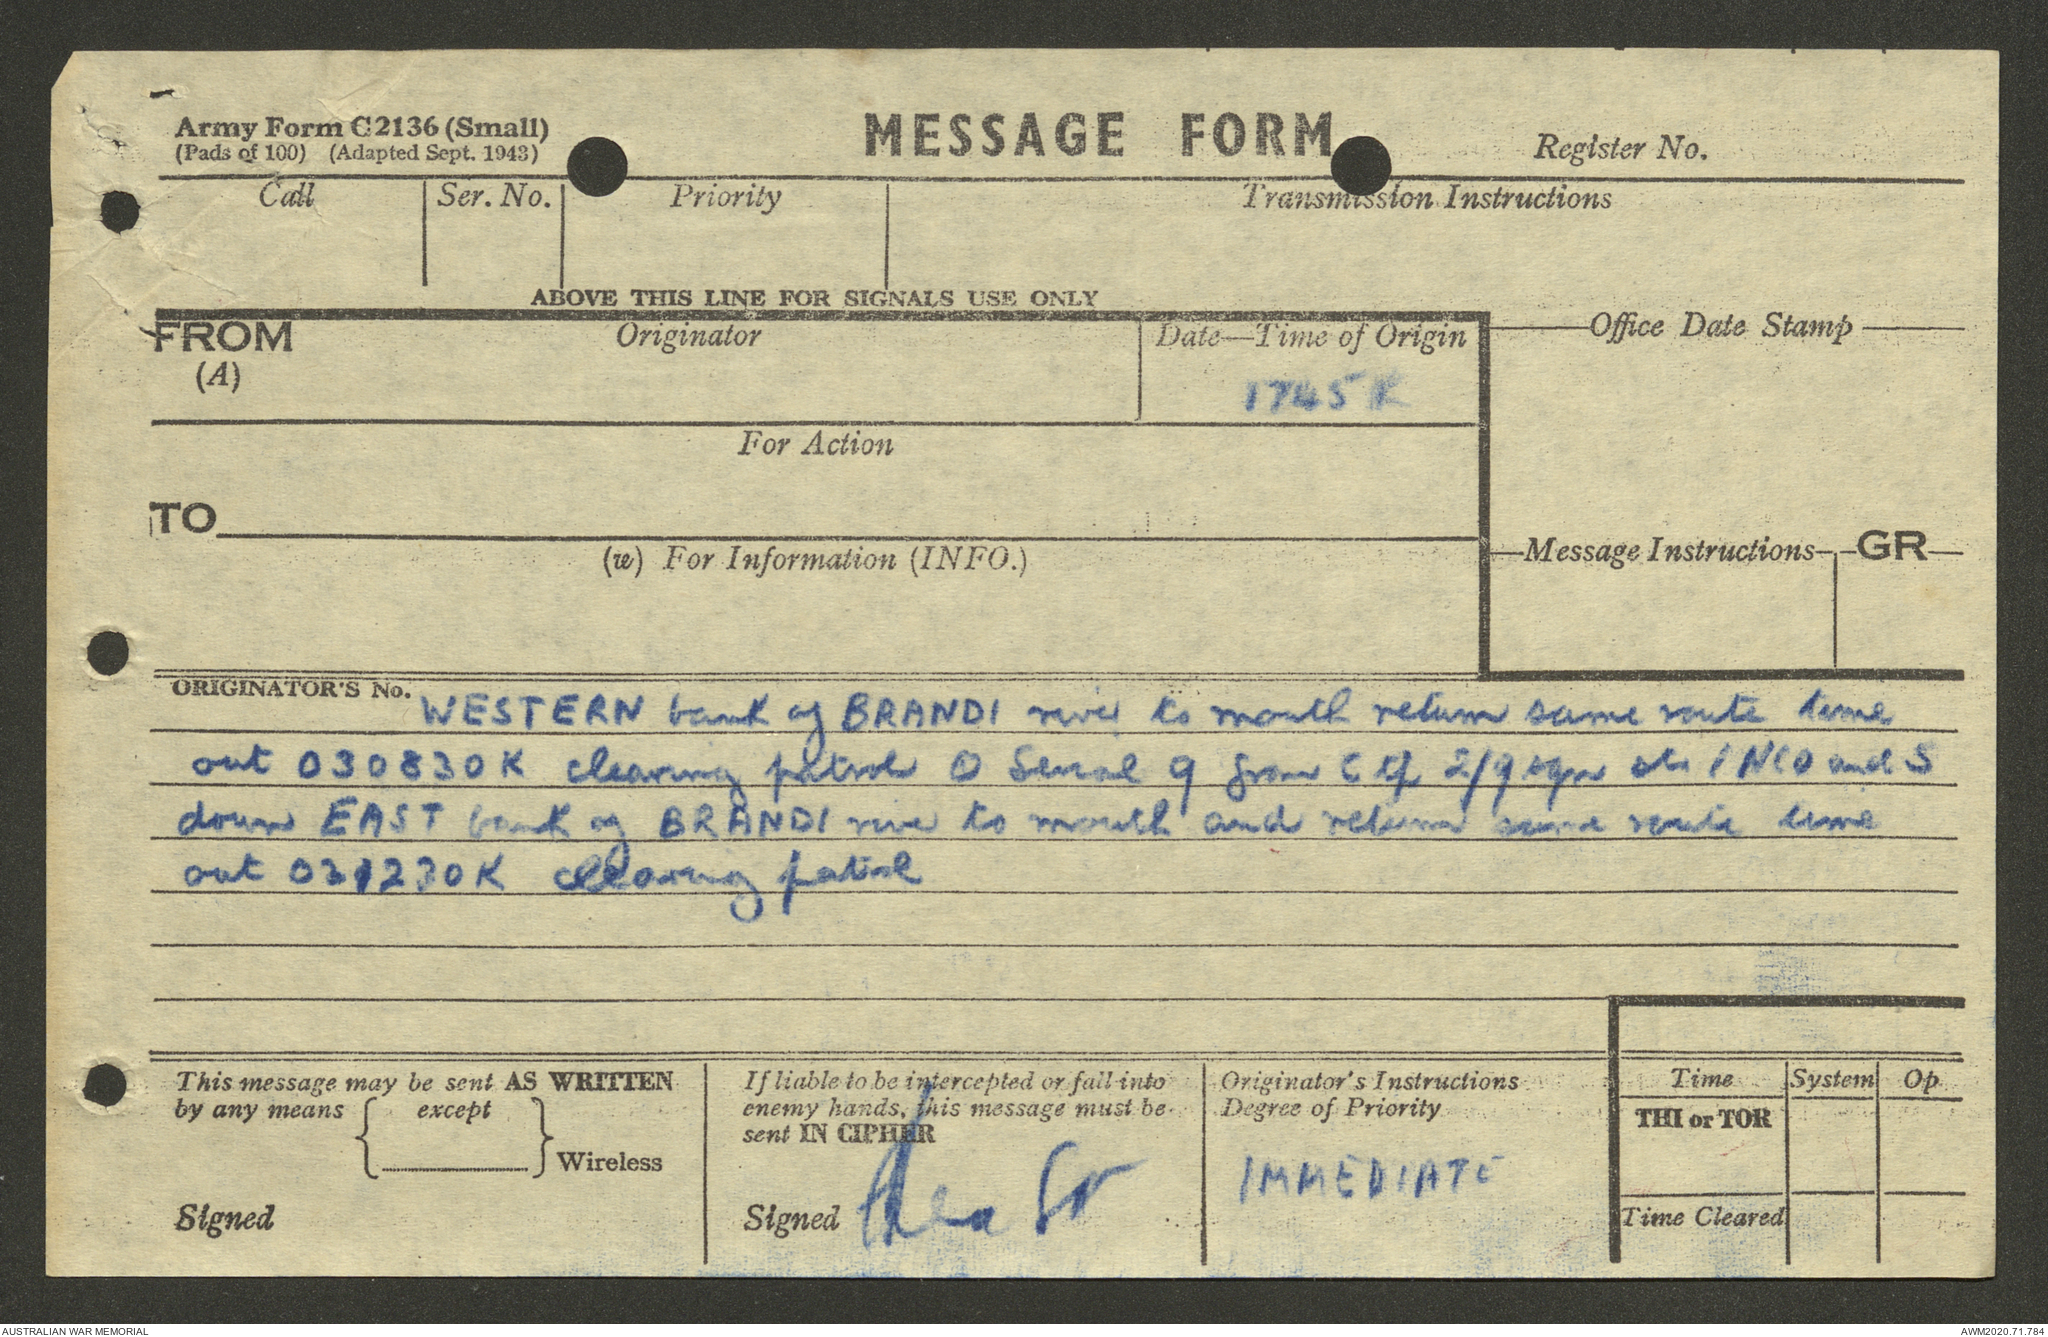 Army Form C2136 (Small)
(Pads of 100) (Adapted Sept. 1943)
MESSAGE FORM
Register No.
Call
Ser. No.
Priority
Transmission Instructions
ABOVE THIS LINE FOR SIGNALS USE ONLY
FROM
(A)
Originator
Date—Time of Origin
1745 K
Office Date Stamp
For Action
TO
(w) For Information (INFO.)
Message Instructions
GR
ORIGINATOR'S No.
WESTERN bank of BRANDI river to mouth return same route time
out 030830K clearing patrol O Serial 9 from C 2/9 str 1 NCO and 5
down EAST bank of BRANDI river to mouth and return same route time
out 031230K clearing patrol
This message may be sent AS WRITTEN
by any means
except
Wireless
Signed
If liable to be intercepted or fall into
enemy hands, this message must be
sent IN CIPHER
Signed
Originator's Instructions
Degree of Priority
IMMEDIATE
Time
System
Op
THI or TOR
Time Cleared
AUSTRALIAN WAR MEMORIAL
AWM2020.71.784